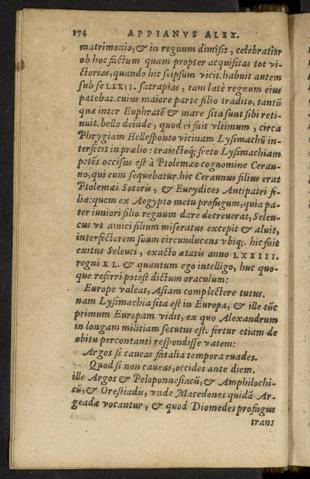 174 APPIANVS ALEX.
matrimonio, & in regnum dimisit, celebratior
ob hoc factum quam propter acquisitas tot vi-
ctorias, quando hic seipsum vicit. habuit autem
sub se LXXII. satrapias, tam latè regnum eius
patebat. cuius maiore parte filio tradito, tantũ
quæ inter Euphratẽ & mare sita sunt sibi reti-
nuit. bello deinde, quod ei fuit vltimum, circa
Phrygiam Hellesponto vicinam Lysimachũ in-
terfecit in prælio: traiectoq́; freto Lysimachiam
petẽs occisus est à Ptolemæo cognomine Cerau-
no, qui eum sequebatur. hic Ceraunus filius erat
Ptolemæi Soteris, & Eurydices Antipatri fi-
liæ: quem ex Aegypto metu profugum, quia pa-
ter iuniori filio regnum dare decreuerat, Seleu-
cus vt amici filium miseratus excepit & aluit,
interfectorem suum circunducens vbiq́;. hic fuit
exitus Seleuci, exacto ætatis anno LXXIII.
regni XL. & quantum ego intelligo, huc quo-
que referri potest dictum oraculum:
Europe valeat, Asiam complectere tutus.
nam Lysimachia sita est in Europa, & ille tũc
primum Europam vidit, ex quo Alexandrum
in longam militiam secutus est. fertur etiam de
obitu percontanti respondisse vatem:
Argos si caueas fatalia tempora euades.
Quod si non caueas, occides ante diem.
ille Argos & Peloponnesiacũ, & Amphilochi-
cũ, & Orestiadis, vnde Macedones quidã Ar-
geadæ vocantur, & quod Diomedes profugus
trans